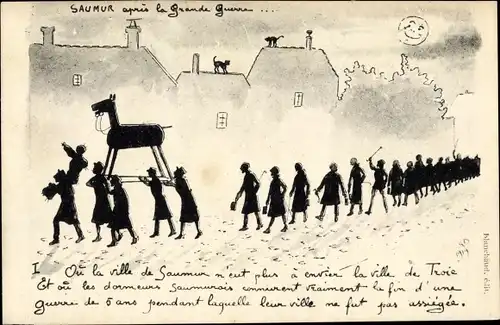 SAUMUR après la Grande Guerre...
I Où la ville de Saumur n'eut plus à envier la ville de Troie
Et où les dormeurs Saumurois connurent vraiment la fin d'une
guerre de 5 ans pendant laquelle leur ville ne fut pas assiégée.
édit.